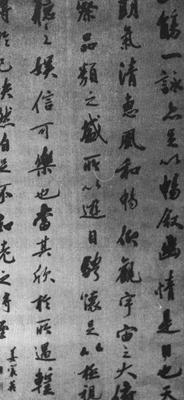 觴一詠亦足以暢敘幽情是日也天
朗氣清惠風和暢仰觀宇宙之大俯
察品類之盛所以遊目騁懷足以極視
聽之娛信可樂也當其欣於所遇輒
得於己快然自足不知老之將至